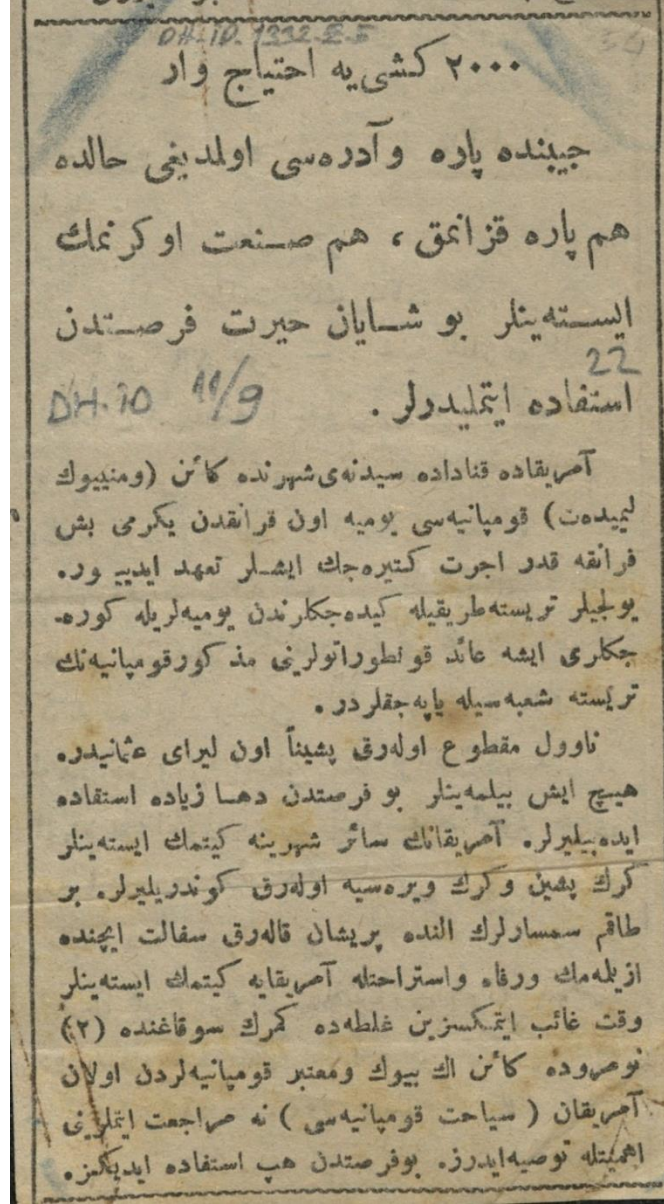 DH.İD. 1332.
٢٠٠٠ كشی‌یه احتیاج وار
جیبنده پاره و آدره‌سی اولمدیغی حالده
هم پاره قزانمق ، هم صنعت اوكرنمك
ایسته‌ینلر بو شایان حیرت فرصتدن
22
استفاده ایتملیدرلر .
DH.İD 11/9
آمریقاده قناداده سیدنه‌ی شهرنده كائن (ومنییوك
لیمیده‌ت) قومپانیه‌سی یومیه اون فرانقدن یكرمی بش
فرانقه قدر اجرت كتیره‌جك ایشلر تعهد ایدییور.
یولجیلر تریسته طریقیله كیده‌جكلرندن یومیه‌لریله كوره‌
جكلری ایشه عائد قونطوراتولرینی مذكور قومپانیه‌نك
تریسته شعبه‌سیله یاپه‌جقلردر .
ناوول مقطوع اوله‌رق پشیناً اون لیرای عثمانیدر.
هیچ ایش بیلمه‌ینلر بو فرصتدن دها زیاده استفاده
ایده‌بیلیرلر. آمریقانك سائر شهرینه كیتمك ایسته‌ینلر
كرك پشین و كرك ویره‌سیه اوله‌رق كوندریلیرلر. بر
طاقم سمسارلرك النده پریشان قاله‌رق سفالت ایچنده
ازیلمه‌مك و رفاه و استراحتله آمریقایه كیتمك ایسته‌ینلر
وقت غائب ایتمكسزین غلطه‌ده كمرك سوقاغنده (٢)
نومروده كائن اك بیوك و معتبر قومپانیه‌لردن اولان
آمریقان ( سیاحت قومپانیه‌سی ) نه مراجعت ایتملرینی
اهمیتله توصیه ایدرز. بو فرصتدن هپ استفاده ایدیكز.